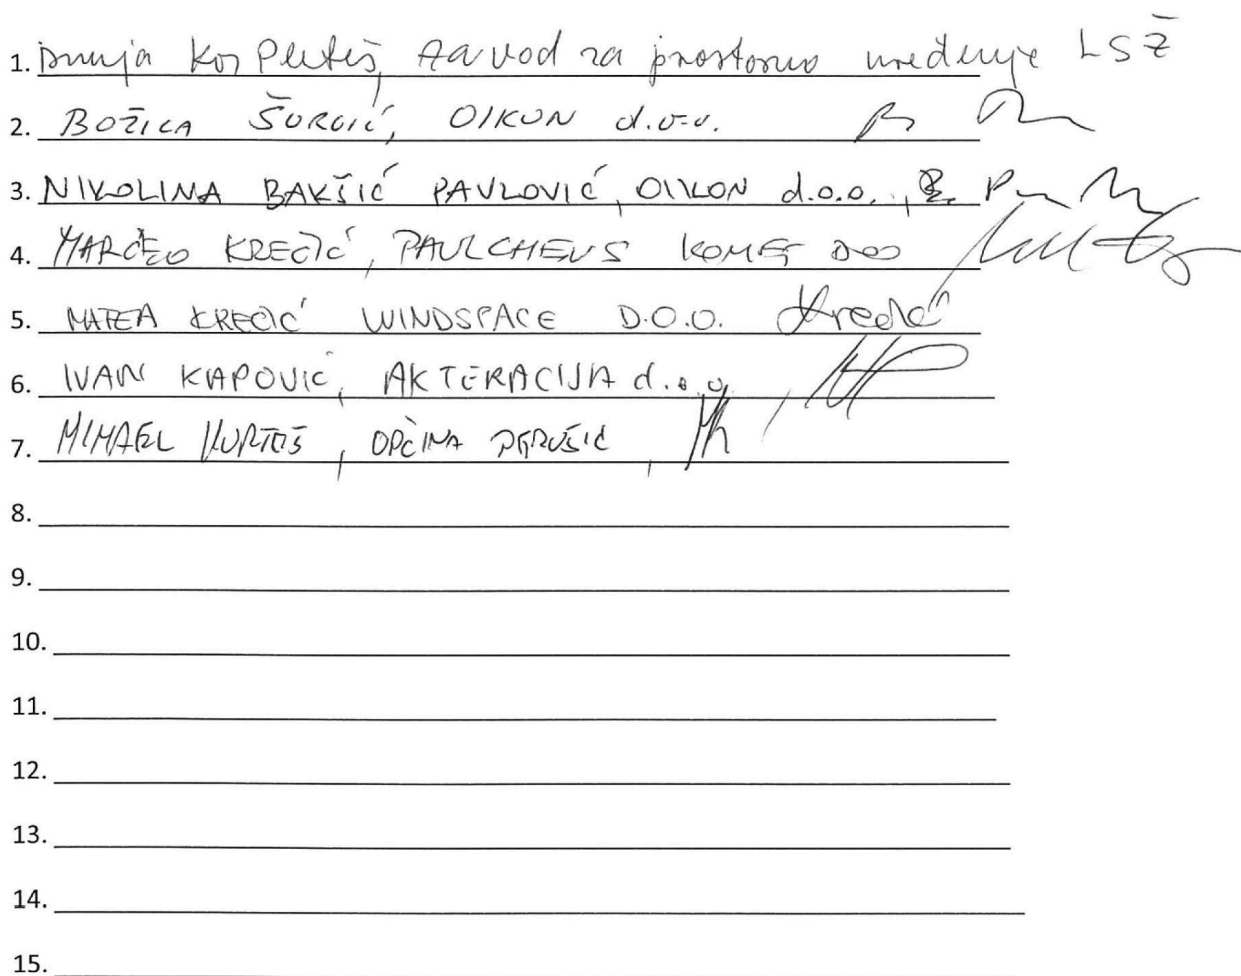 1. Kos Pleteš, Zavod za prostorno uređenje LSŽ
2. BOŽICA ŠORGIĆ, OIKON d.o.o.
3. NIKOLINA BAKŠIĆ PAVLOVIĆ, OIKON d.o.o.,
4. KREČIĆ, PAULCHENS KOMET DOO
5. MATEA KREČIĆ WINDSPACE D.O.O.
6. IVAN KAPOVIĆ, AKTERACIJA d.o.o.,
7. MIHAEL KURTEŠ, OPĆINA PERUŠIĆ,
8.
9.
10.
11.
12.
13.
14.
15.